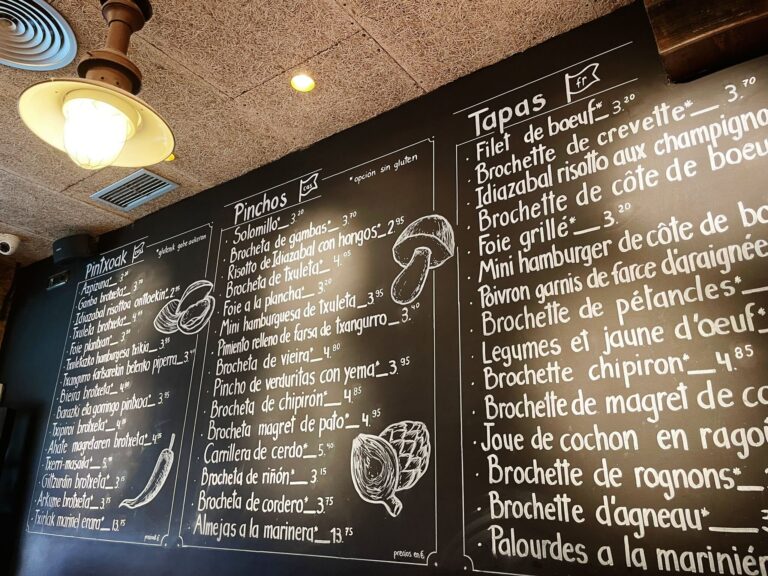 Pintxoak
*glutenik gabe aukeran
· Azpizuna*_ 3.20
· Ganba brotxeta*_ 3.70
· Idiazabal risottoa onttoekin*_ 2.95
· Txuleta brotxeta*_ 4.05
· Foie plantxan*_ 3.20
· Txuletazko hamburgesa txikia_ 3.95
· Txangurro fartsarekin piperra_ 3.40
· Bieira brotxeta*_ 4.80
· Barazki eta gorringo pintxoa*_ 3.95
· Txipiroi brotxeta*_ 4.85
· Ahate magretaren brotxeta*_ 4.95
· Txerri-masaila*_ 5.40
· Giltzurdin brotxeta*_ 3.15
· Arkume brotxeta*_ 3.75
· Txirlak marinel erara*_ 13.75
Pinchos cas
*opción sin gluten
· Solomillo*_ 3.20
· Brocheta de gambas*_ 3.70
· Risotto de Idiazabal con hongos*_ 2.95
· Brocheta de txuleta*_ 4.05
· Foie a la plancha*_ 3.20
· Mini hamburguesa de txuleta*_ 3.95
· Pimiento relleno de farsa de txangurro_ 3.40
· Brocheta de vieira*_ 4.80
· Pincho de verduritas con yema*_ 3.95
· Brocheta de chipirón*_ 4.85
· Brocheta magret de pato*_ 4.95
· Carrillera de cerdo*_ 5.40
· Brocheta de riñón*_ 3.15
· Brocheta de cordero*_ 3.75
· Almejas a la marinera*_ 13.75
precios en €
Tapas fr
· Filet de bœuf*_ 3.20
· Brochette de crevette*__ 3.70
· Idiazabal risotto aux champigno
· Brochette de côte de boeu
· Foie grillé*__ 3.20
· Mini hamburger de côte de bo
· Poivron garnis de farce d'araignée
· Brochette de pétancles*__
· Legumes et jaune d'œuf*
· Brochette chipiron*__ 4.85
· Brochette de magret de ca
· Joue de cochon en ragoû
· Brochette de rognons*__
· Brochette d'agneau*___ 3
· Palourdes a la marinié